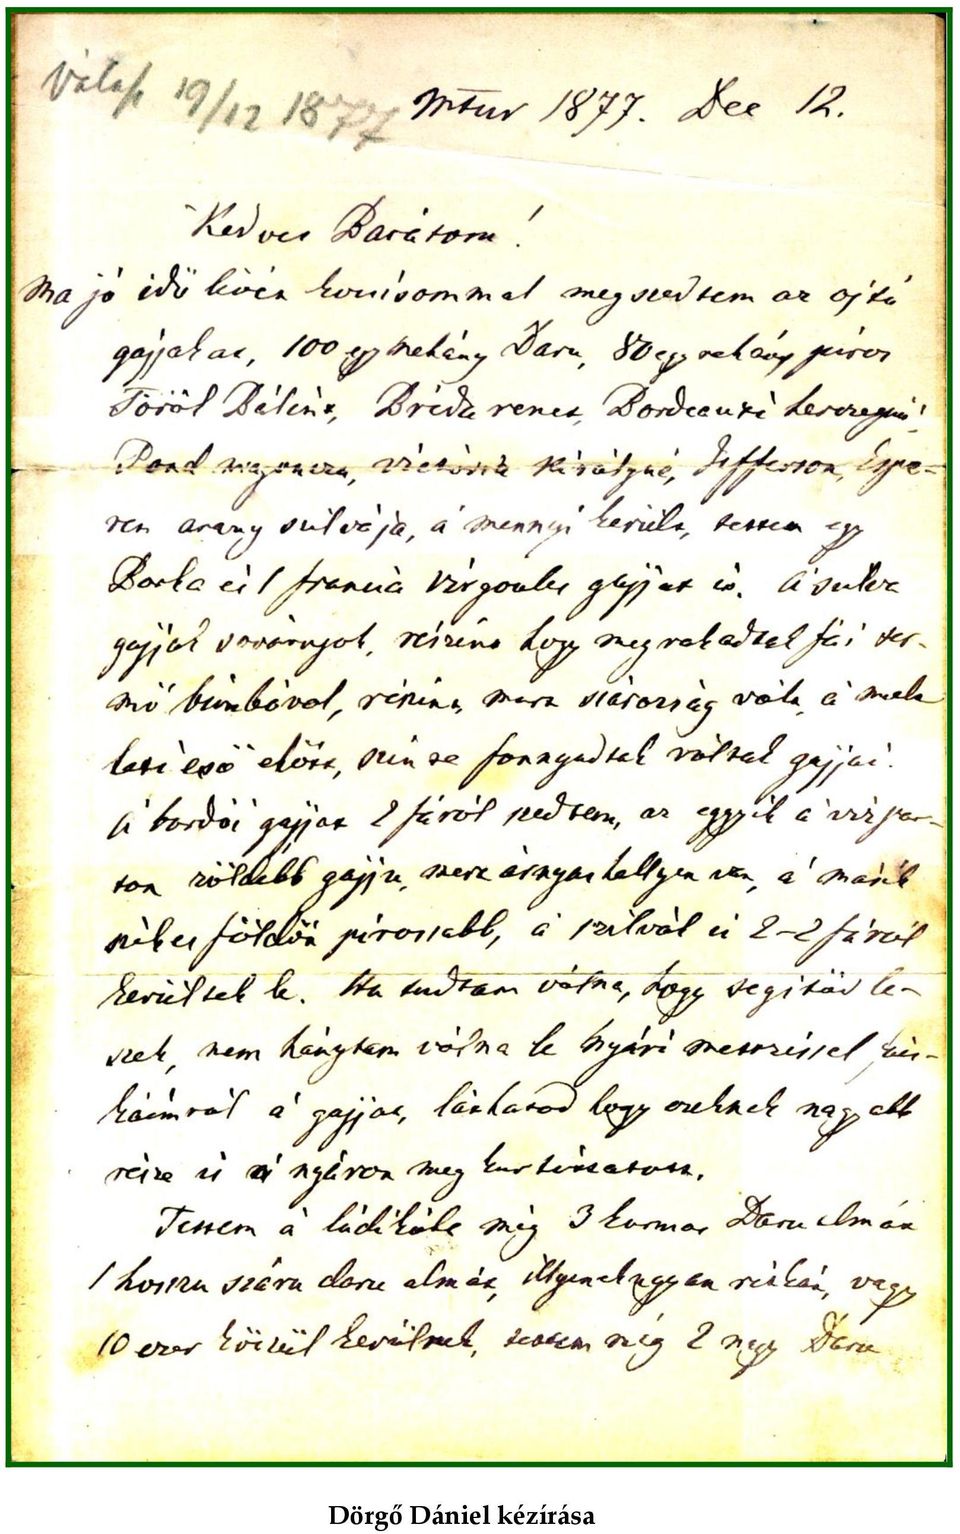 Válasz 19/12 1877
MTur 1877. Dec 12.
Kedves Barátom!
Ma jó idő lévén kocsisommal megszedtem az ojtó
gajjakat, 100 egy nehány Daru, 80 egy nehány piros
Török Bálint, Bréda renet, Bordeauxi herczegnő,
Pond magoncza, victória királyné, Jefferson, Espe-
ren arany szilvája, a mennyi került, tettem egy
Bocka és 1 francia Virgoules gajjat is. A szilva
gajjak soványok, részint hogy megrakadtak fái ter-
mő bimbóval, részint mert szárazság vólt, a mult
heti eső előtt, szinte fonnyadtak vóltak gajjai.
A bordói gajjat 2 fáról szedtem, az eggyik a vizpar-
ton zöldebb gajju, mert árnyas hellyen van, a másik
székes földön pirossabb, a szilvák is 2-2 fáról
kerültek le. Ha tudtam vólna, hogy segitőd le-
szek, nem hánytam vólna le nyári metszéssel fács-
káimról a gajjat, láthatod hogy ezeknek nagyobb
része is a nyáron meg kurtíttatott.
Tettem a ládikába még 3 kormos Daru almát
1 hosszu száru daru almát, illyenek ugyan ritkán, vagy
10 ezer közül kerülnek, tettem még 2 nagy Daru
Dörgő Dániel kézírása